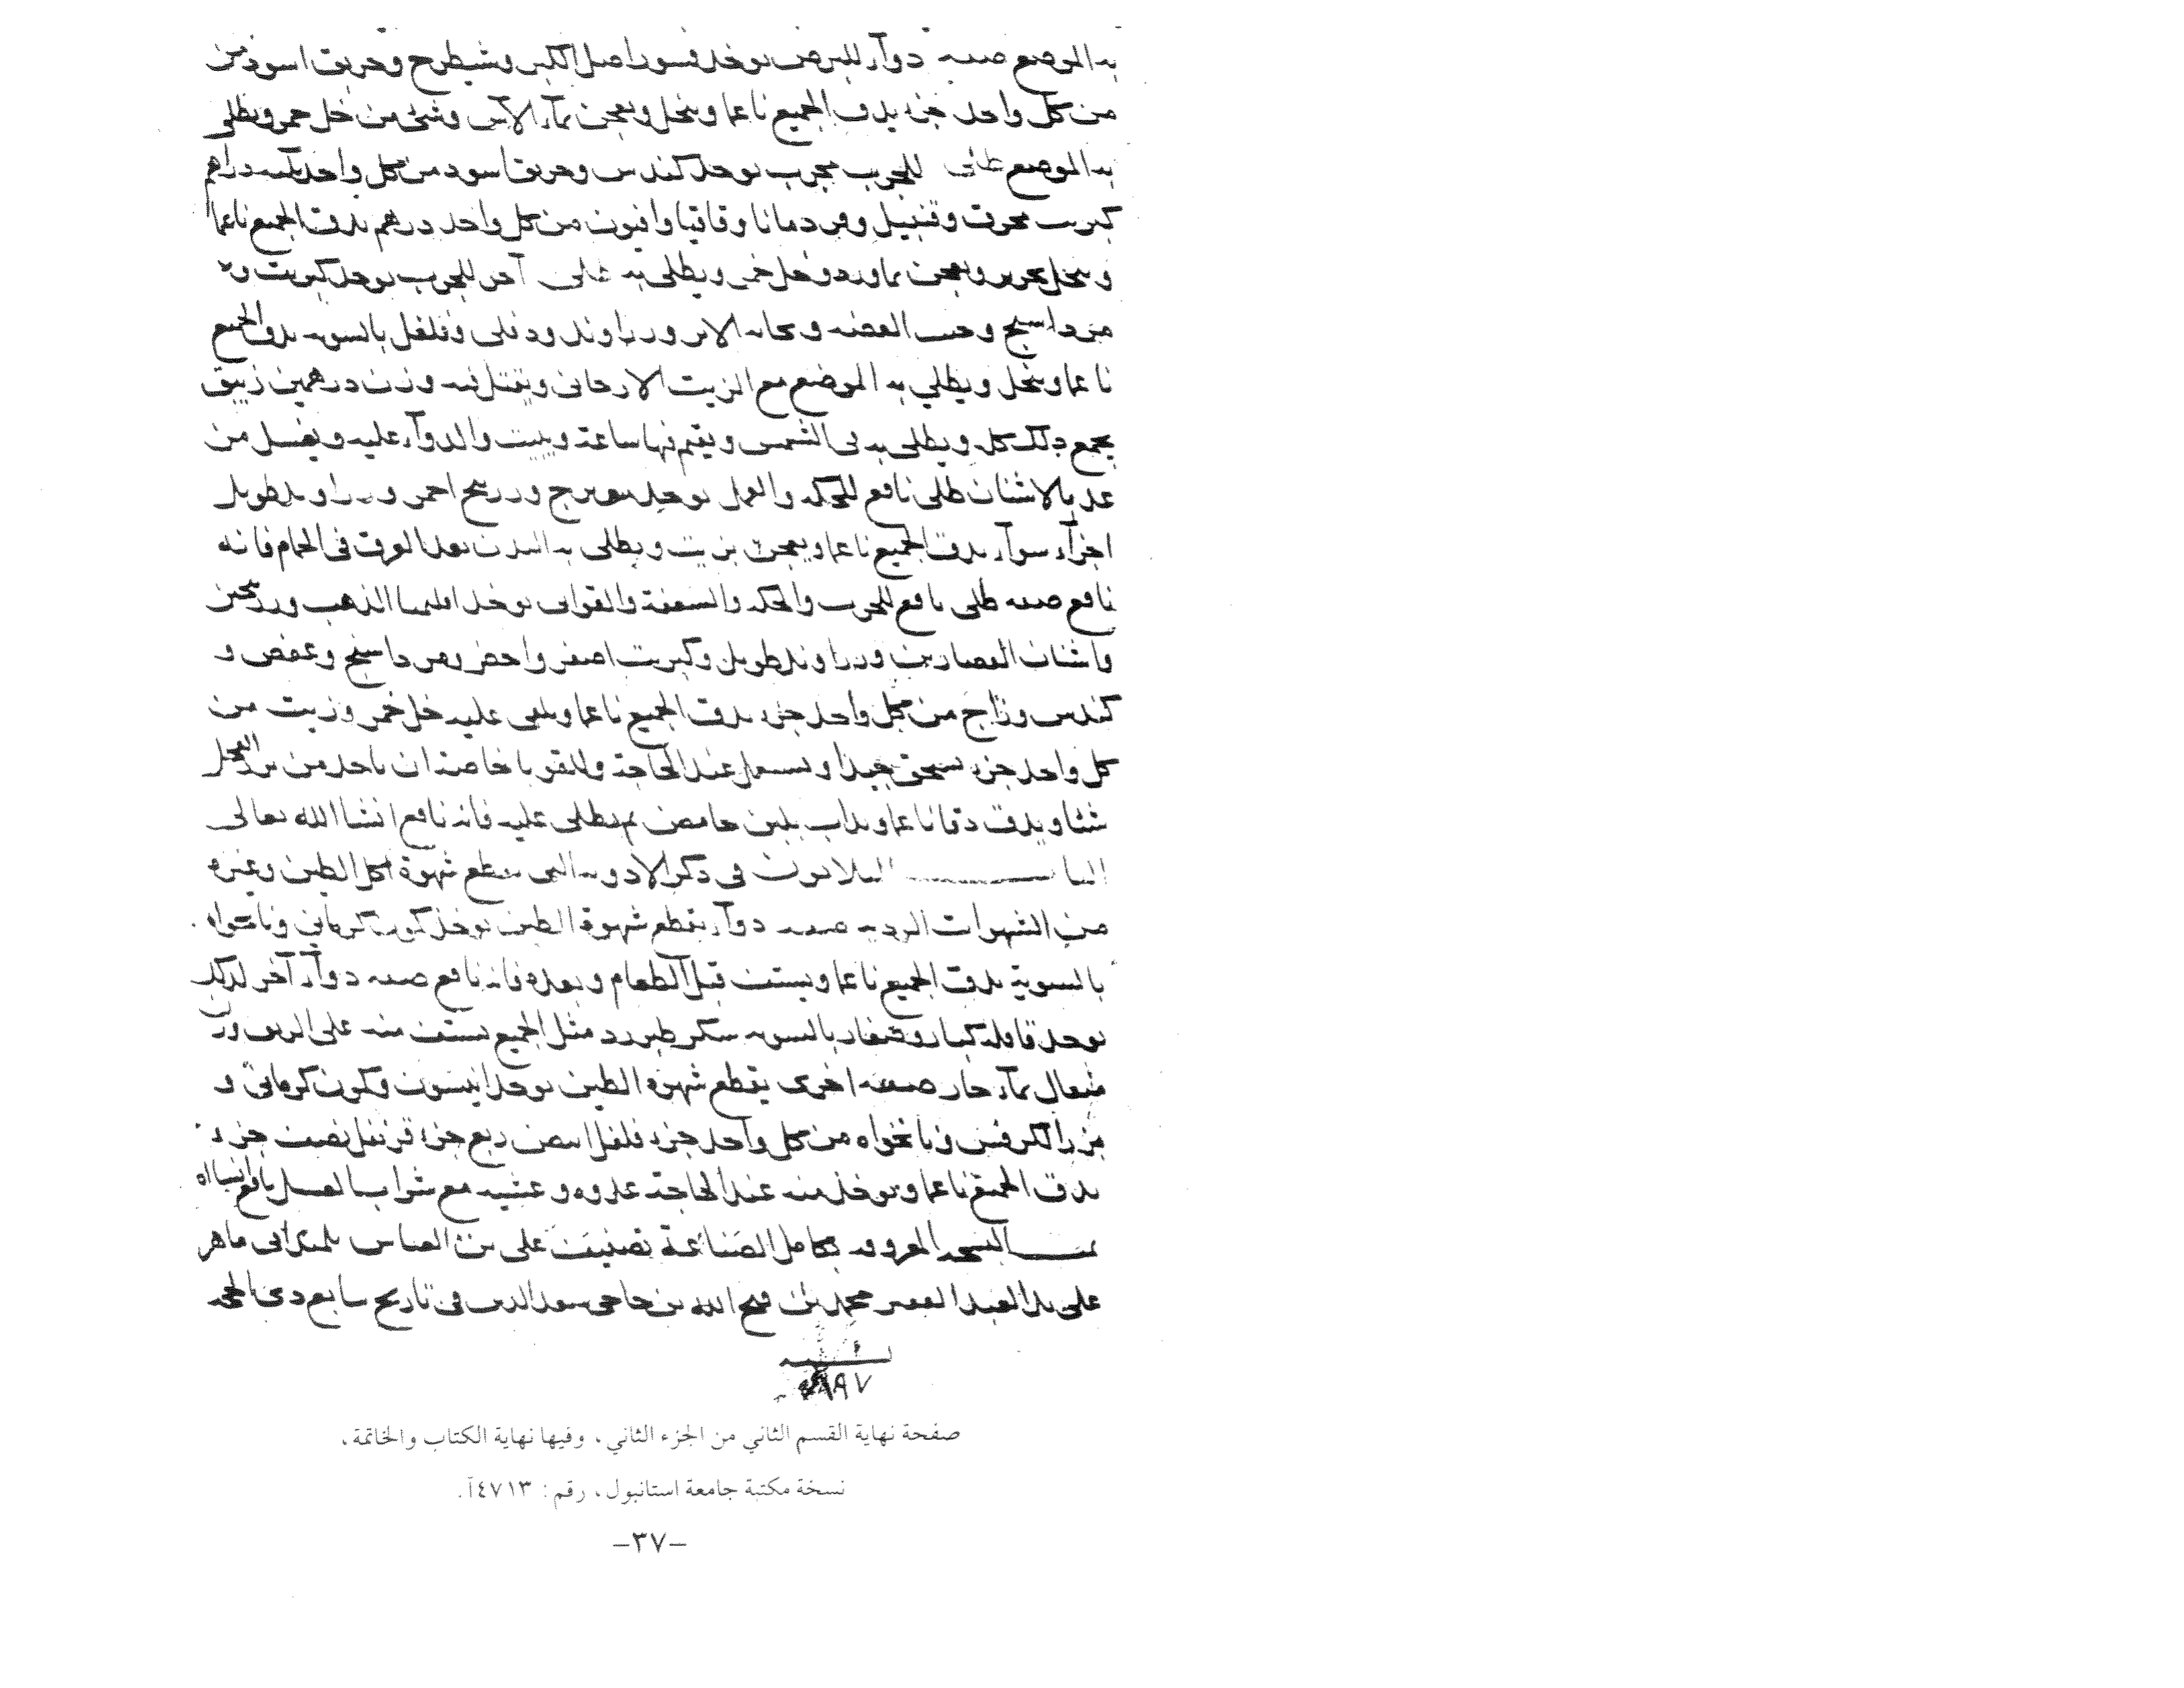 به الموضع صفه دوآء للبرص يوخذ قسور اصل الكبر وشيطرح وخربق اسود من
من كل واحد جزء يدق الجميع ناعما وينخل ويعجن بمآء الآس وشئ من خل خمر ويطلى
به الموضع طلى للجرب مجرب يوخذ كندس وخربق اسود من كل واحد ثلثه دراهم
كبريت محرق وقنبيل وقردمانا وقاقيا وافيون من كل واحد درهم يدق الجميع ناعما
وينخل بحرير ويعجن بماورد وخل خمر ويطلى به طلى آخر للجرب يوخذ كبريت و
مرداسنج وخبث الفضه و الابر وزراوند ودفلى وفلفل بالسويه يدق الجميع
ناعما وينخل ويطلي به الموضع مع الزيت الاركانى ويقتل فيه وزن درهمين زيبق
يجمع ذلك كله ويطلى به فى الشمس ويقيم فيها ساعة ويبيت والدوآء عليه ويغسل من
غد بالاشنان طلى نافع للحكه والقمل يوخذ ميويزج وزرنيخ احمر وزراوند طويل
اجزآء سوآء يدق الجميع ناعما ويعجن بزيت ويطلى به البدن بعد العرق فى الحمام فانه
نافع صفه طلى نافع للجرب والحكه والسعفة والقوابى يوخذ اقليميا الذهب وزرنيخين
واشنان القصارين وزراوند طويل وكبريت اصفر واخضر ومرداسنج وعفص و
كندس وزاج من كل واحد جزء يدق الجميع ناعما ويلقى عليه خل خمر وزيت من
كل واحد جزء يسحق جيدا ويستعمل عند الحاجة وللقوبا خاصة ان ياخذ من بزر الفجل
شئا ويدق دقا ناعما ويذاب بلبن حامض ثم يطلى عليه فانه نافع انشا الله تعالى
الباب الثلاثون فى ذكر الادويه التى تقطع شهوة اكل الطين وغيره
من الشهوات الرديه صفه دوآء يقطع شهوة الطين يوخذ كمون كرمانى ونانخواه
بالسوية يدق الجميع ناعما ويستف قبل الطعام وبعده فانه نافع صفه دوآء آخر لذلك
يوخذ قاقله كبار وصغار بالسويه سكر طبرزد مثل الجميع يستف منه على الريق وزن
مثقال بمآء حار صفه اخرى يقطع شهوة الطين يوخذ انيسون وكمون كرمانى و
بزر الكرفس ونانخواه من كل واحد جزء فلفل ابيض ربع جزء قرنفل نصف جزء
يدق الجميع ناعما ويوخذ منه عند الحاجة غدوه وعشيه مع شراب العسل نافع انشا الله
تمت النسخه المعروفه بكامل الصناعة تصنيف على بن العباس تلميذ ابى ماهر
على يد العبد الفقير محمد بن فتح الله بن حاجى سعد الدين فى تاريخ سابع ذى الحجه
لسنه
٨٩٧
صفحة نهاية القسم الثاني من الجزء الثاني، وفيها نهاية الكتاب والخاتمة،
نسخة مكتبة جامعة استانبول، رقم: ٤٧١٣آ.
–٣٧–